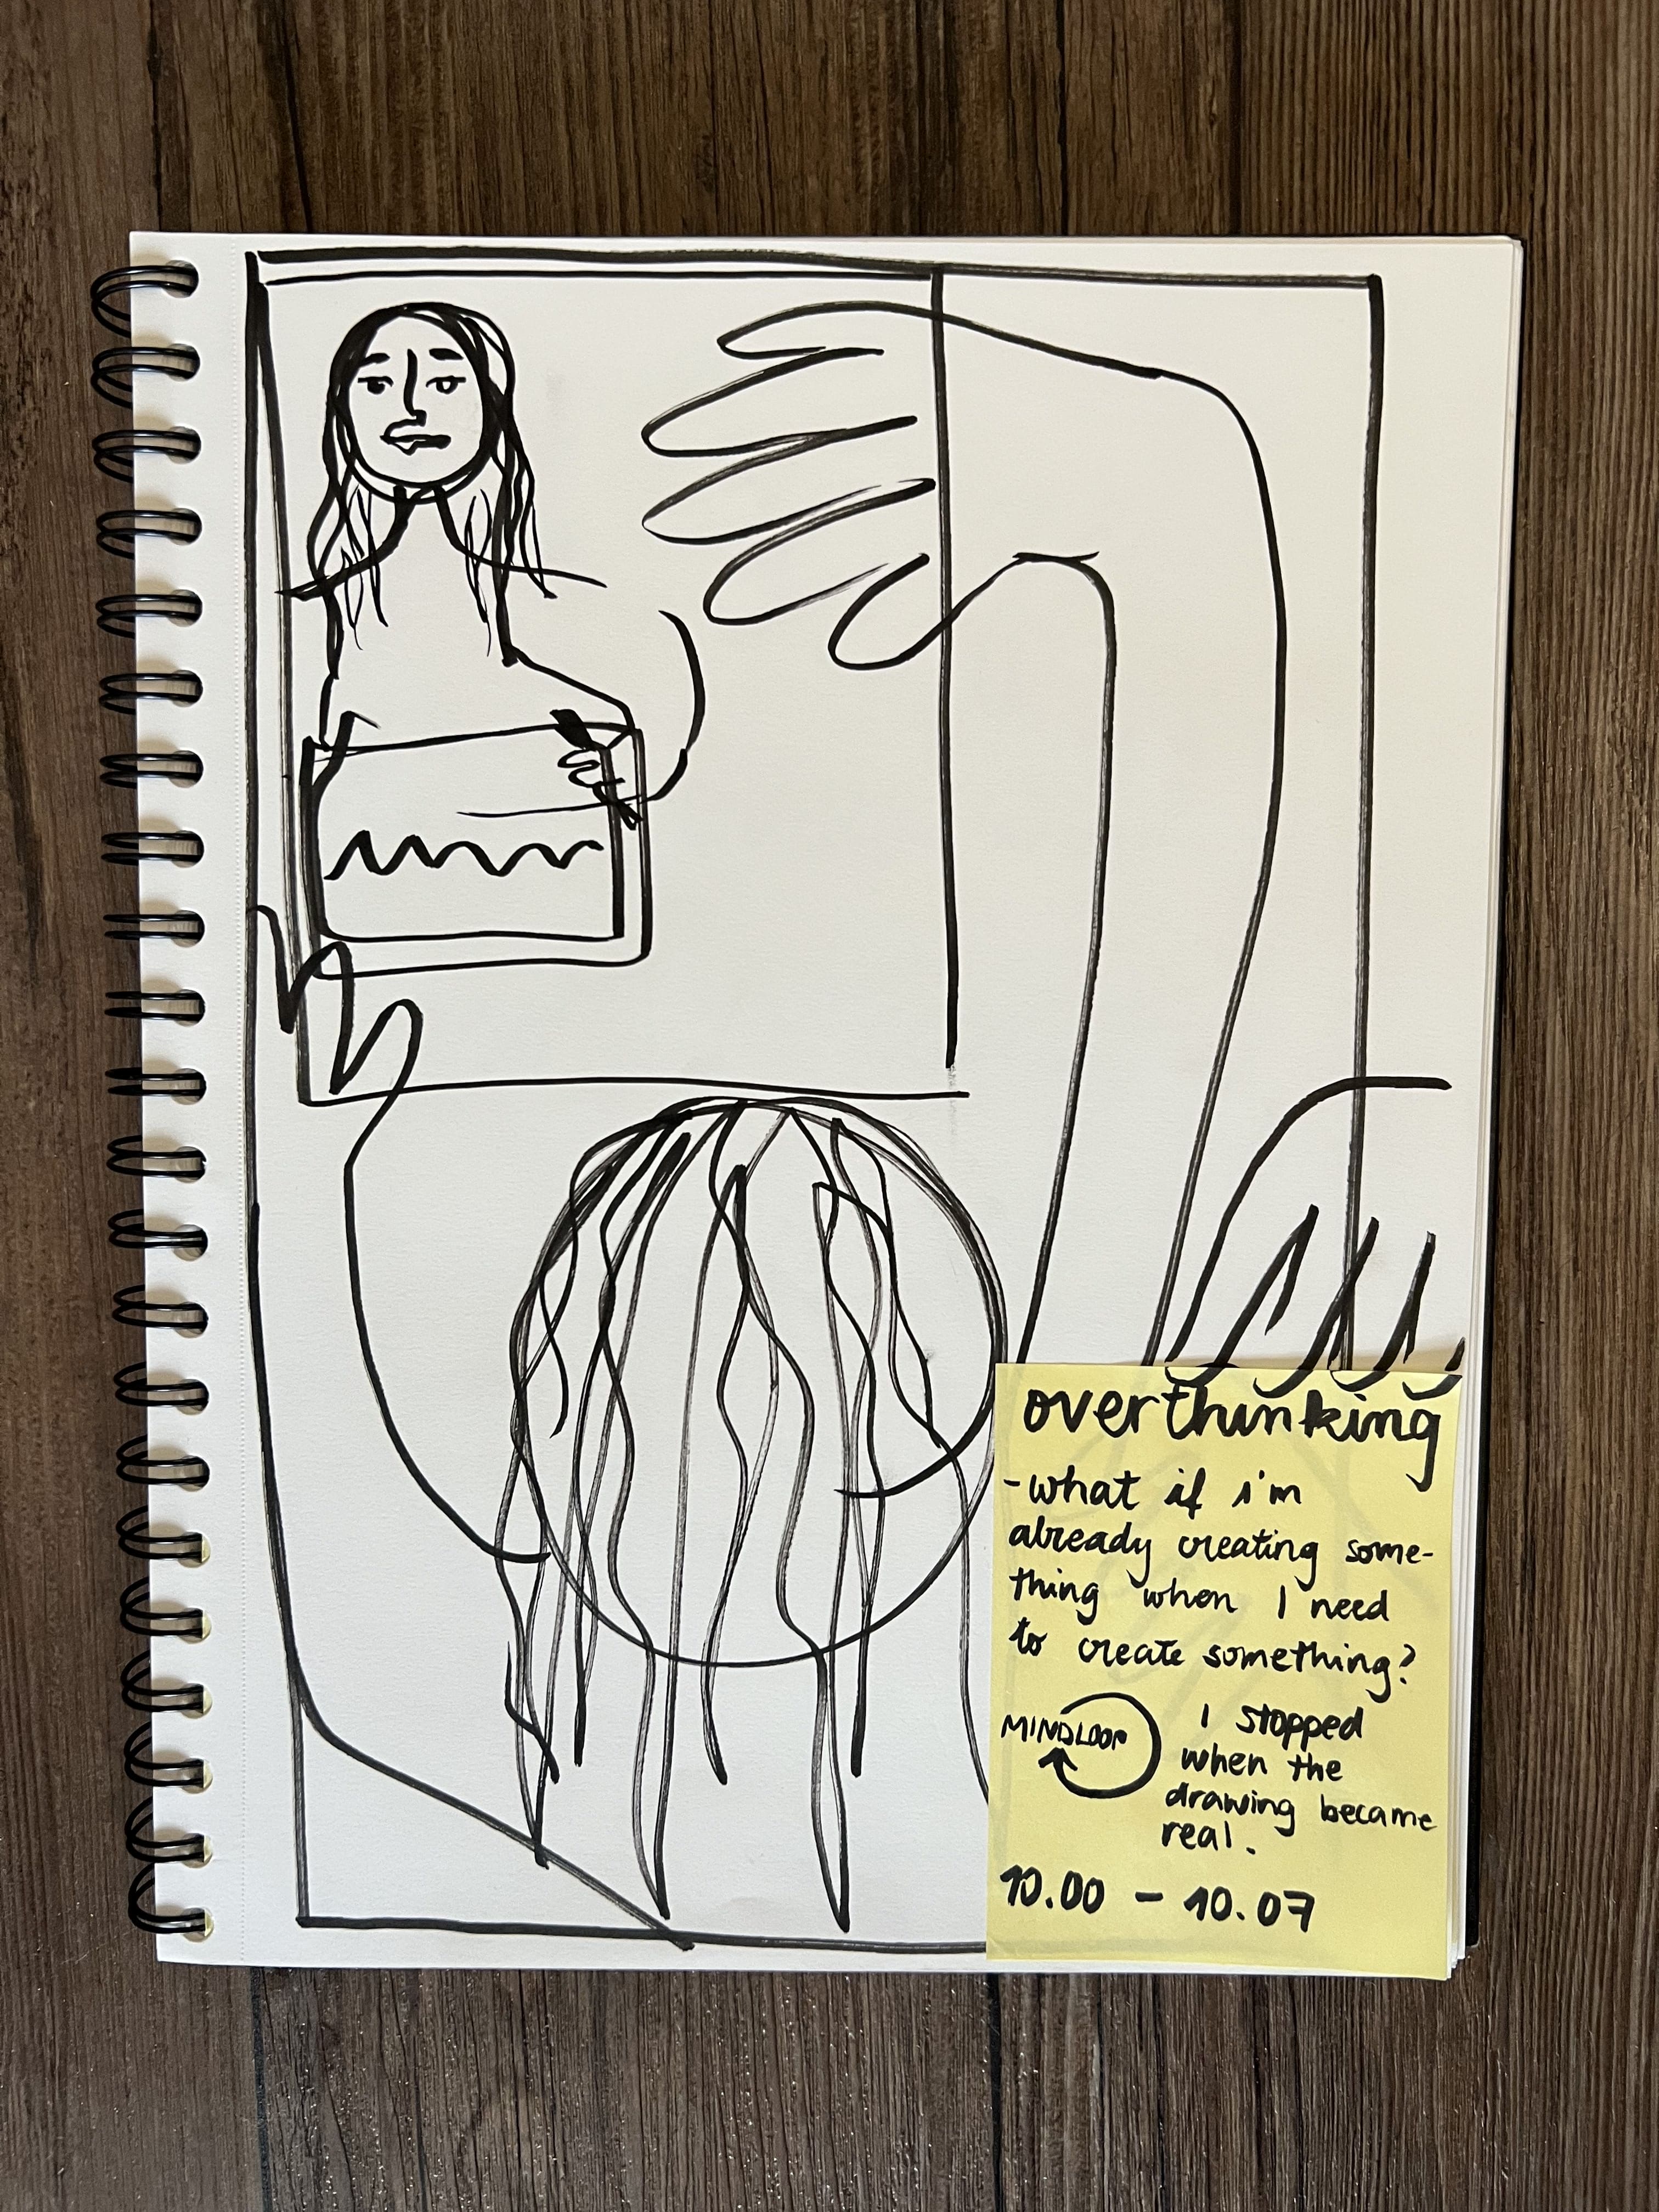 overthinking
-what if i'm
already creating some-
thing when I need
to create something?
MINDLOOP
I stopped
when the
drawing became
real.
10.00 - 10.07